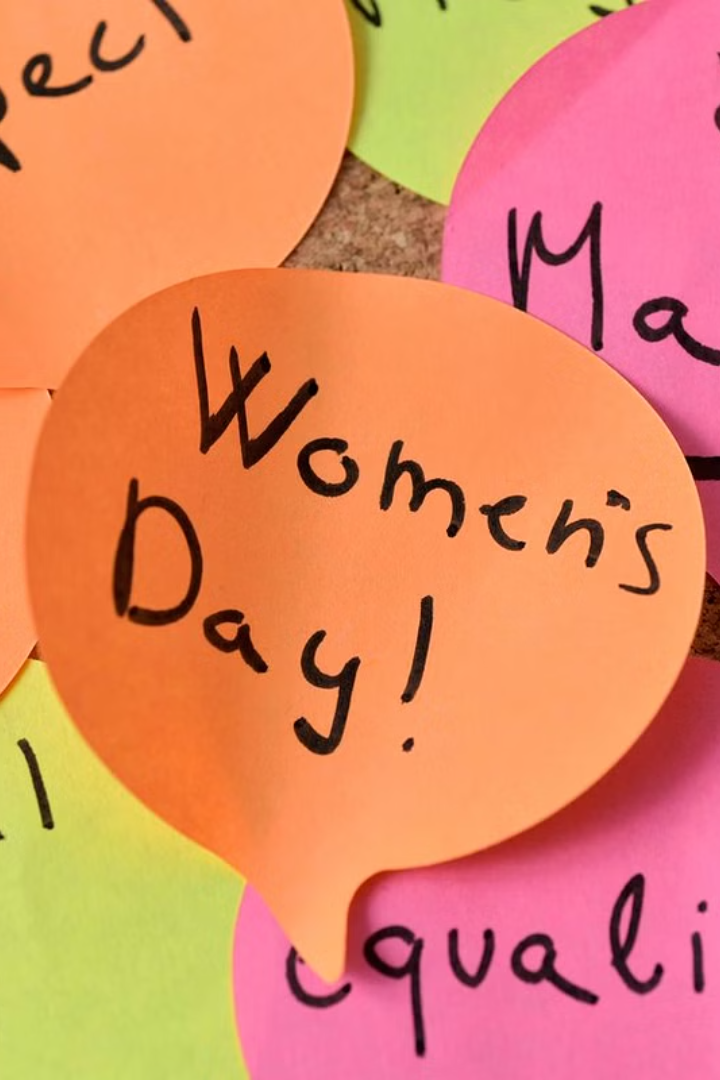 pect
Ma
Women's
Day!
equali